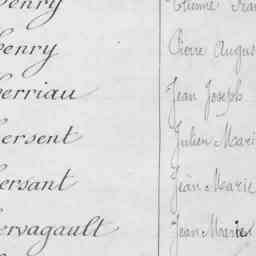 enry Etienne Fran
enry Pierre Augus
erriau Jean Joseph
ersent Julien Mari
ersant Jean Marie
ervagault Jean Marie